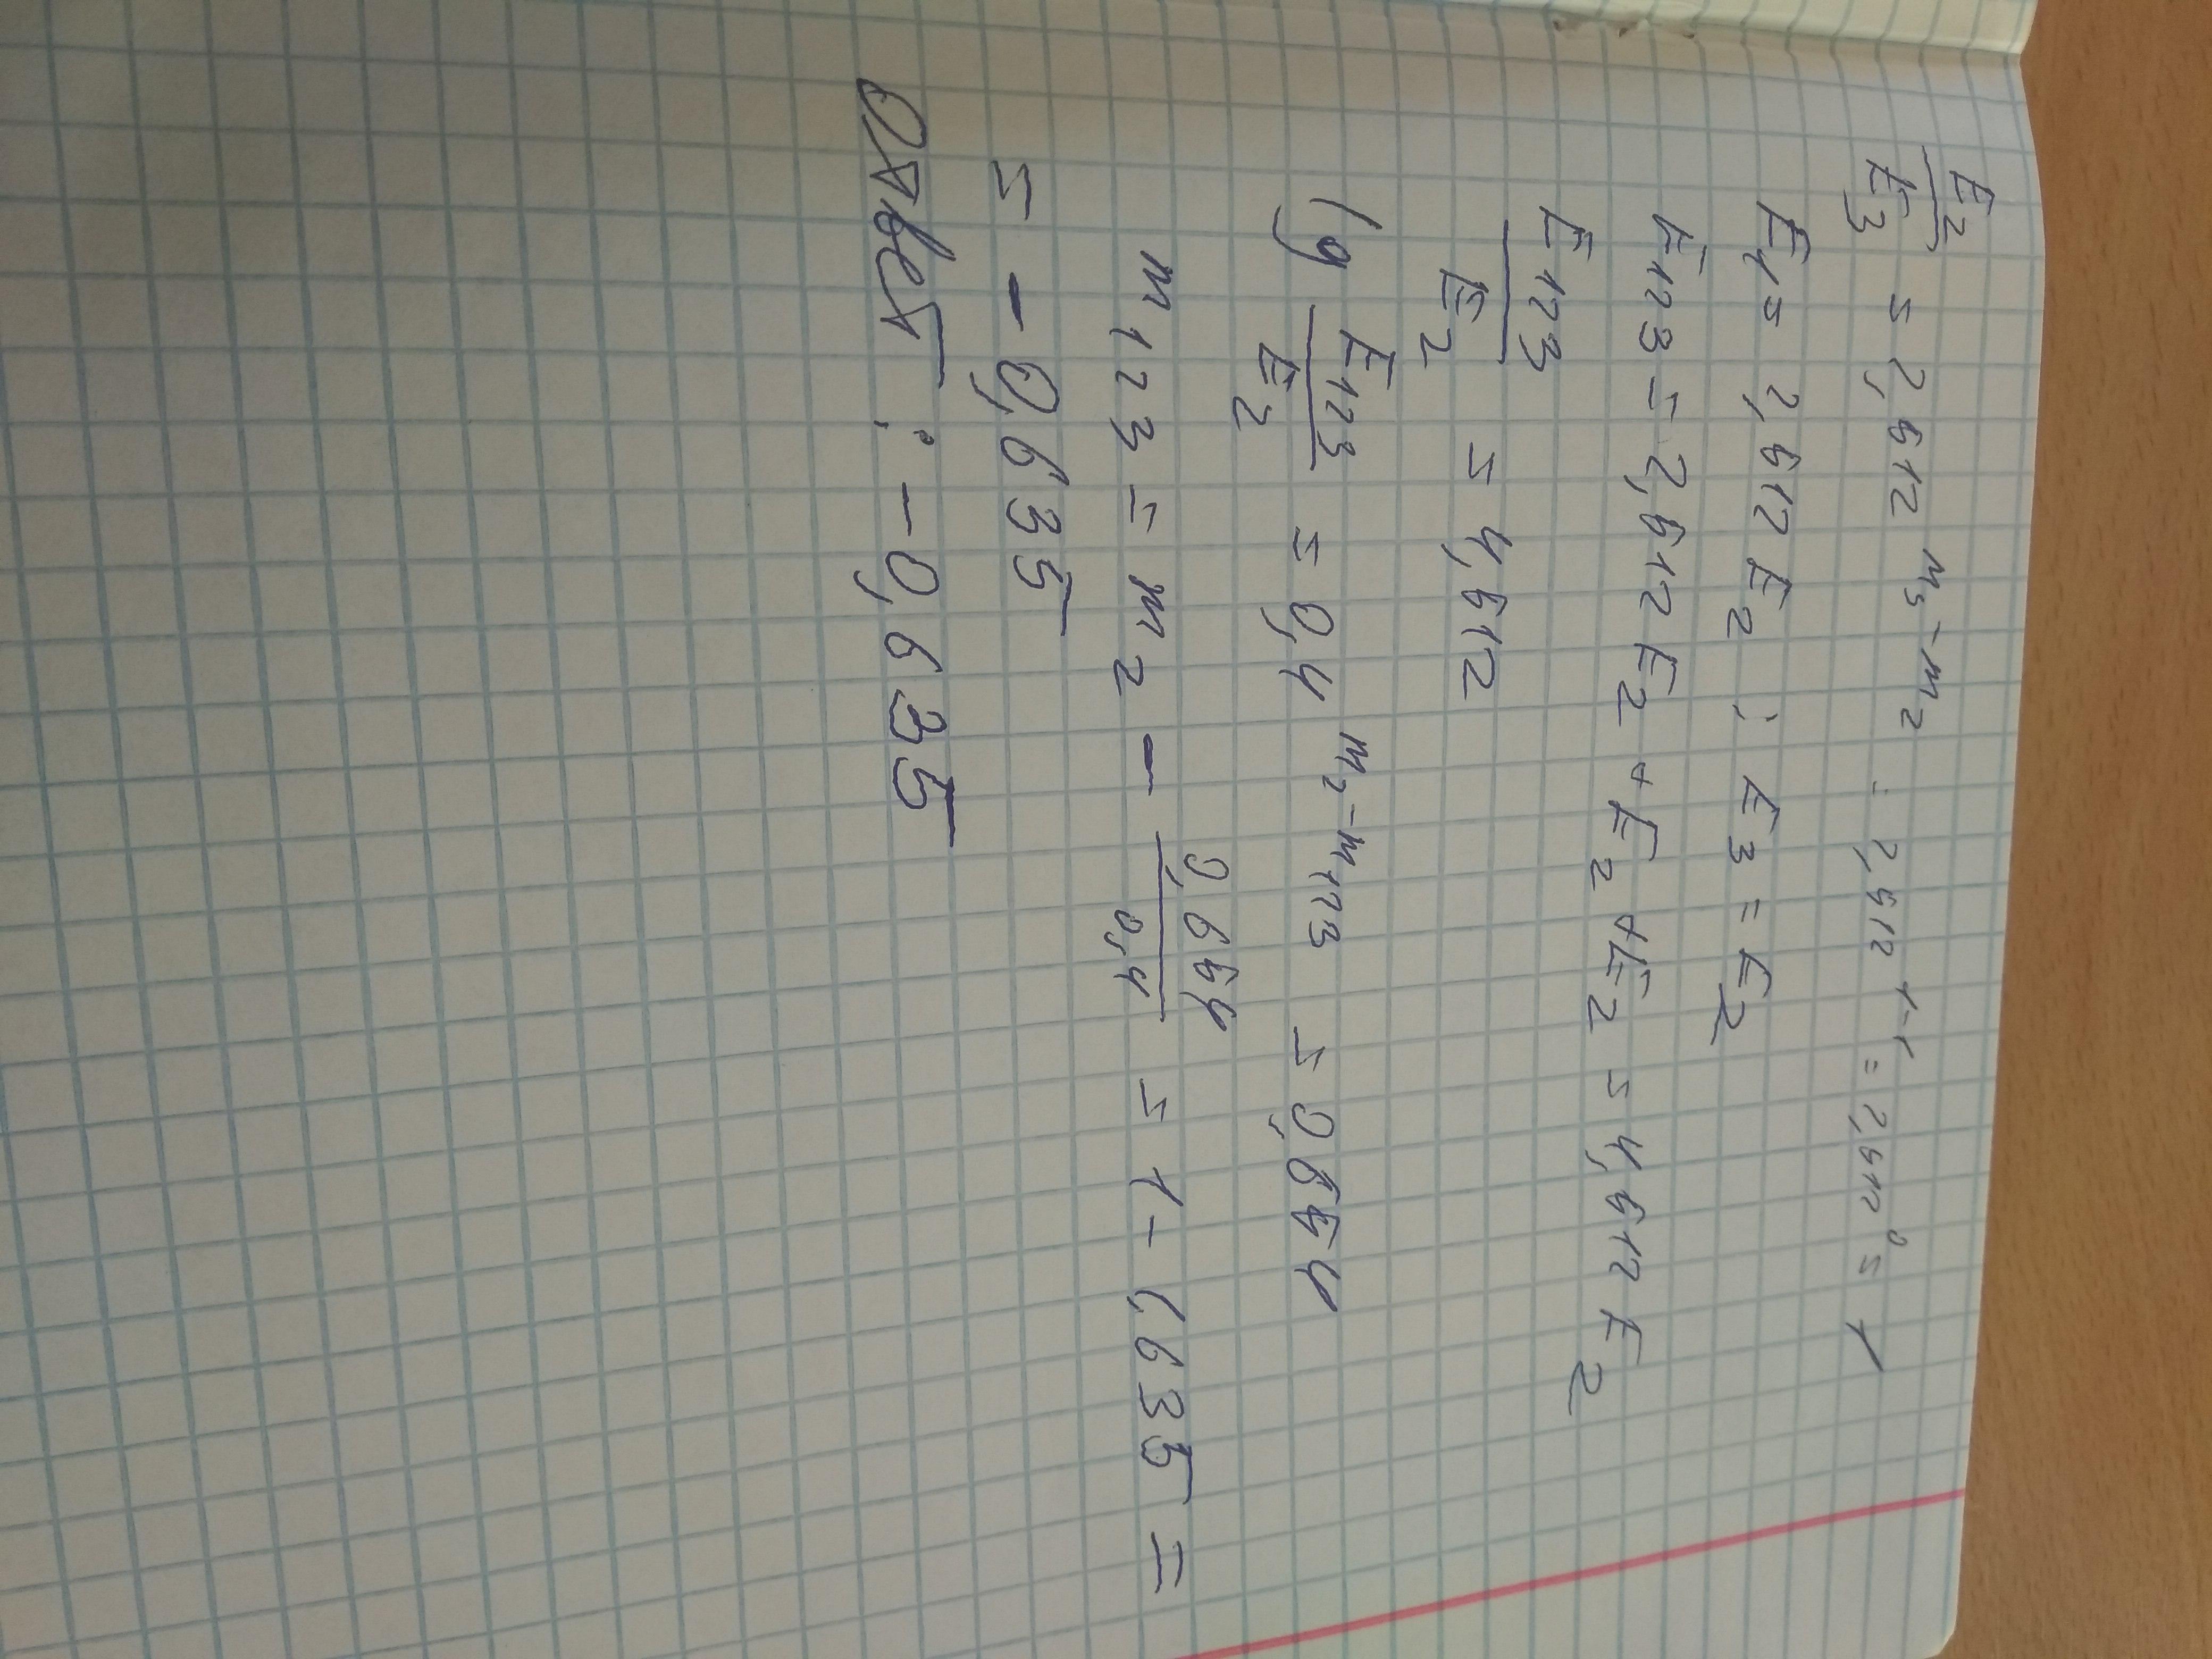 E2/E3 = 2,512 ^ m3 - m2 = 2,512 ^ 1-1 = 2,512 ^ 0 = 1
E1 = 2,512 E2 ; E3 = E2
E123 = 2,512 E2 + E2 + E2 = 4,512 E2
E123/E2 = 4,512
lg E123/E2 = 0,4 ^ m2 - m123 = 0,654
m123 = m2 - 0,654/0,4 = 1 - 1,635 =
= - 0,635
Ответ : - 0,635